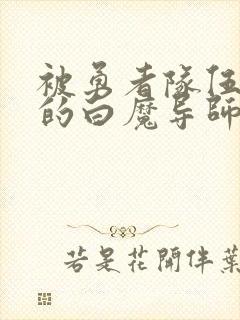 被勇者隊伍
的白魔导師
若是花開伴葉